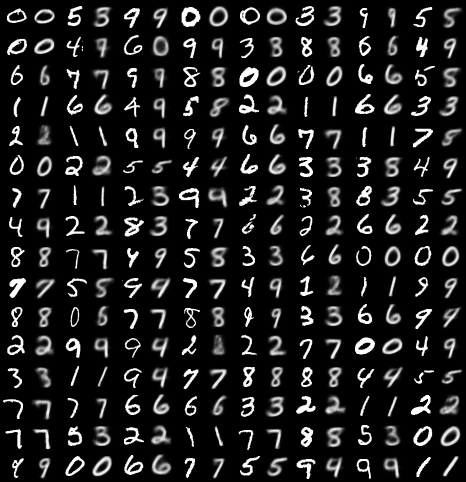 0 0 5 3 9 9 0 0 0 0 3 3 9 9 5 5
0 0 4 9 6 0 9 9 3 3 8 8 6 6 4 9
6 6 7 7 9 9 8 8 0 0 0 0 6 6 5 8
1 1 6 6 4 9 5 8 2 2 1 1 6 6 3 3
2 2 1 1 9 9 9 9 6 6 7 7 1 1 7 5
0 0 2 2 5 5 4 4 6 6 3 3 3 8 4 9
7 7 1 1 2 3 9 9 2 2 3 8 8 3 5 5
4 9 2 2 8 3 7 7 6 6 2 2 6 6 2 2
8 8 7 7 4 9 5 8 3 3 6 6 0 0 0 0
9 7 5 5 9 4 7 7 4 9 1 2 1 1 9 9
8 8 0 6 7 7 8 8 9 9 3 3 6 6 9 4
2 2 9 9 9 4 2 8 2 2 7 7 0 0 4 9
3 3 1 1 9 4 7 7 8 8 8 8 4 4 5 5
7 7 7 7 6 6 6 6 3 3 2 2 1 1 2 2
7 7 5 3 2 2 1 1 7 7 8 8 5 3 0 0
9 9 0 0 6 6 7 7 5 5 9 4 9 9 1 1